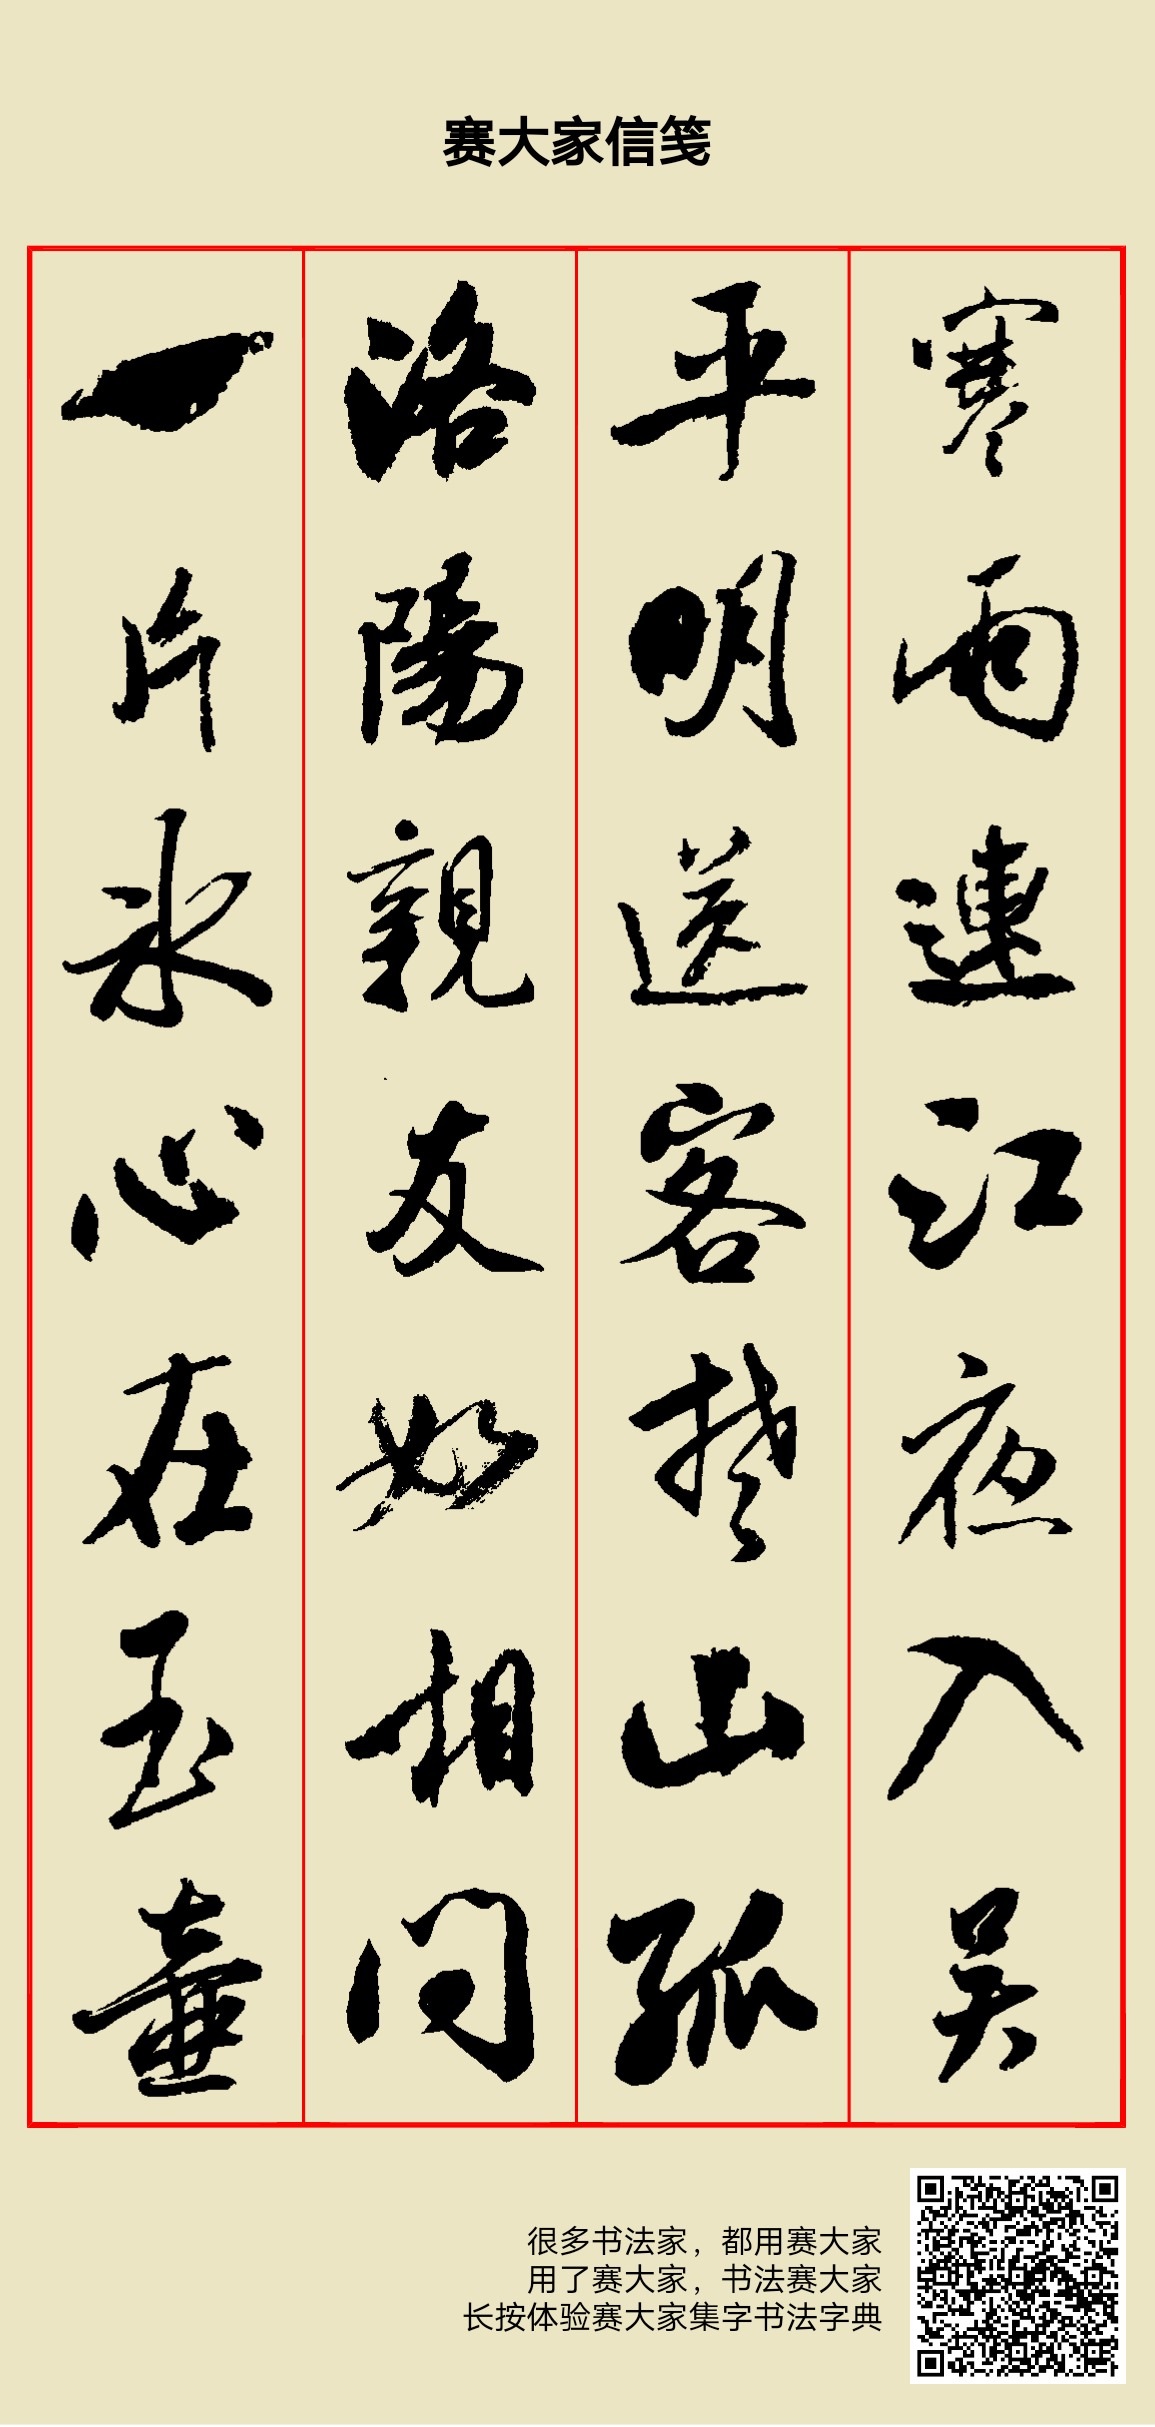 赛大家信笺
寒雨連江夜入吴
平明送客楚山孤
洛陽親友如相问
一片冰心在玉壷
很多书法家，都用赛大家
用了赛大家，书法赛大家
长按体验赛大家集字书法字典